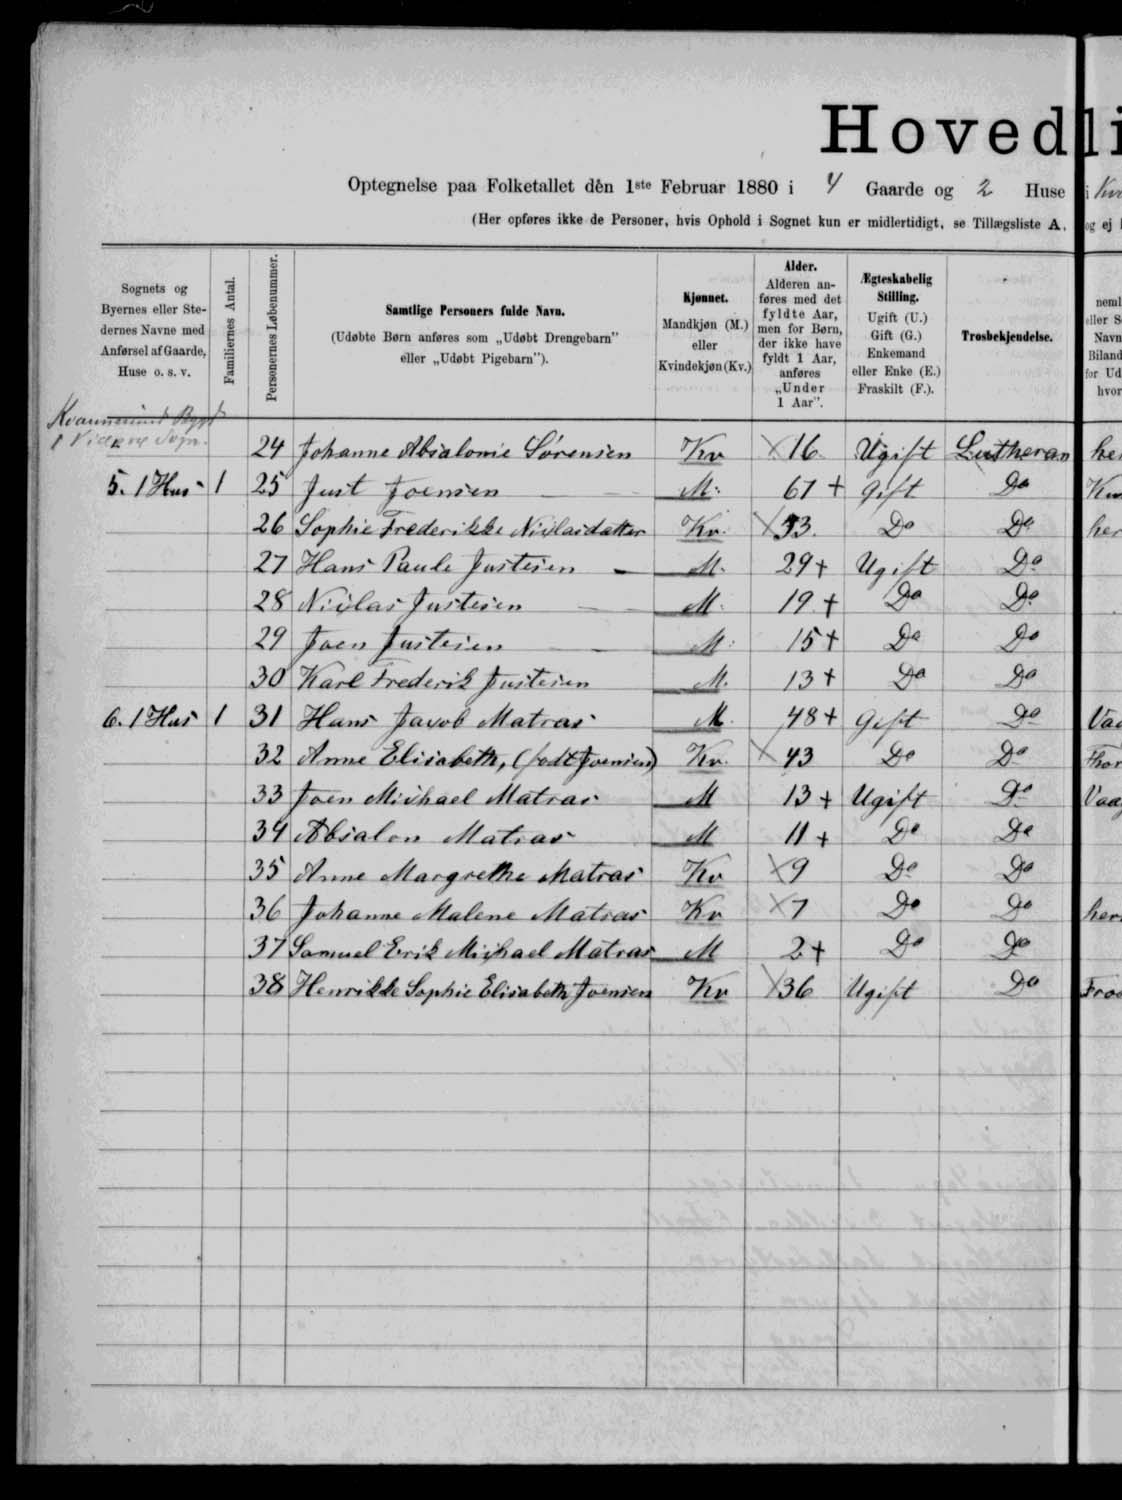 Hovedli
Optegnelse paa Folketallet dén 1ste Februar 1880 i 4 Gaarde og 2 Huse i
(Her opføres ikke de Personer, hvis Ophold i Sognet kun er midlertidigt, se Tillægsliste A, og ej
Sognets og Byernes eller Ste-dernes Navne med Anførsel af Gaarde, Huse o. s. v.
Familiernes Antal.
Personernes Løbenummer.
Samtlige Personers fulde Navn.
(Udøbte Børn anføres som „Udøbt Drengebarn"
eller „Udøbt Pigebarn").
Kjønnet.
Mandkjøn (M.)
eller
Kvindekjøn (Kv.)
Alder.
Alderen an-
føres med det
fyldte Aar,
men for Børn,
der ikke have
fyldt 1 Aar,
anføres
„Under
1 Aar".
Ægteskabelig
Stilling.
Ugift (U.)
Gift (G.)
Enkemand
eller Enke (E.)
Fraskilt (F.).
Trosbekjendelse.
neml
eller S
Navn
Biland
for Ud
hvor
Kvannesund Bygd
i Viderø Sogn.
24 Johanne Absalonie Sørensen Kv × 16 Ugift Lutheran her
5. 1 Hus 1 25 Just Joensen M. 61 + gift Do
26 Sophie Frederikke Niclasdatter Kv. × 53. Do Do her
27 Hans Paule Justesen M. 29 + Ugift Do
28 Niclas Justesen M. 19 + Do Do
29 Joen Justesen M. 15 + Do Do
30 Karl Frederik Justesen M. 13 + Do Do
6. 1 Hus 1 31 Hans Jacob Matras M. 48 + Gift Do Vaa
32 Anne Elisabeth, (født Joensen) Kv. × 43 Do Do Thor
33 Joen Michael Matras M 13 + Ugift Do Vaag
34 Absalon Matras M 11 + Do Do
35 Anne Margrethe Matras Kv × 9 Do Do
36 Johanne Malene Matras Kv × 7 Do Do her
37 Samuel Erik Michael Matras M 2 + Do Do
38 Henrikke Sophie Elisabeth Joensen Kv × 36 Ugift Do